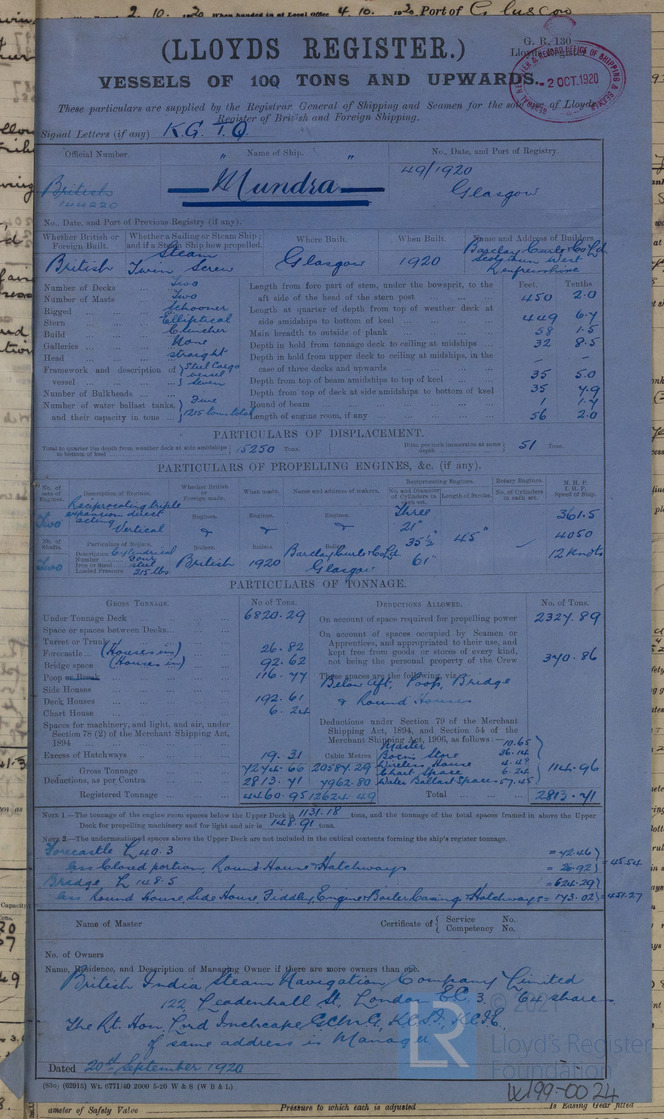 2. 10. 1920 When handed in at Local Office 4. 10. 1920 Port of Glasgow
(LLOYDS REGISTER.)
G. R. 130
VESSELS OF 100 TONS AND UPWARDS.
2 OCT. 1920
These particulars are supplied by the Registrar General of Shipping and Seamen for the sole use of Lloyds
Register of British and Foreign Shipping.
Signal Letters (if any) K.G.T.Q
Official Number. Name of Ship. No., Date, and Port of Registry.
British " Mundra " 49/1920
144220 Glasgow
No., Date, and Port of Previous Registry (if any).
Whether British or Foreign Built. Whether a Sailing or Steam Ship; and if a Steam Ship how propelled. Where Built. When Built. Name and Address of Builders.
British Steam Twin Screw Glasgow 1920 Barclay Curle & Co Ld Scotstoun West Renfrewshire
Feet. Tenths
Number of Decks Two
Number of Masts Two
Rigged Schooner
Stern Elliptical
Build Clencher
Galleries None
Head straight
Framework and description of vessel Steel Cargo vessel
Number of Bulkheads Seven
Number of water ballast tanks, and their capacity in tons Five 1215 tons total
Length from fore part of stem, under the bowsprit, to the aft side of the head of the stern post 450 2.0
Length at quarter of depth from top of weather deck at side amidships to bottom of keel 449 6.7
Main breadth to outside of plank 58 1.5
Depth in hold from tonnage deck to ceiling at midships 32 8.5
Depth in hold from upper deck to ceiling at midships, in the case of three decks and upwards - -
Depth from top of beam amidships to top of keel 35 5.0
Depth from top of deck at side amidships to bottom of keel 35 7.9
Round of beam 1 1.7
Length of engine room, if any 56 2.0
PARTICULARS OF DISPLACEMENT.
Total to quarter the depth from weather deck at side amidships to bottom of keel 15250 Tons. Ditto per inch immersion at same depth 51 Tons.
PARTICULARS OF PROPELLING ENGINES, &c. (if any).
No. of sets of Engines. Description of Engines. Whether British or Foreign made. When made. Name and address of makers. Reciprocating Engines. Rotary Engines. N. H. P.
No. and Diameter of Cylinders in each set. Length of Stroke. No. of Cylinders in each set. I. H. P. Speed of Ship.
Two Reciprocating triple expansion direct acting Vertical Engines. Engines. Engines. Three 21" 35½ 61" 45" 361.5
4050
12 knots
No. of Shafts. Particulars of Boilers. Boilers. Boilers. Boilers.
Two Description Cylindrical British 1920 Barclay Curle & Co Ld Glasgow
Number Four
Iron or Steel steel
Loaded Pressure 215 lbs
PARTICULARS OF TONNAGE.
GROSS TONNAGE. No of Tons. DEDUCTIONS ALLOWED. No. of Tons.
Under Tonnage Deck 6820.29
Space or spaces between Decks
Turret or Trunk
Forecastle (Houses in) 26.82
Bridge space (Houses in) 92.62
Poop or Break 116.77
Side Houses
Deck Houses 192.61
Chart House 6.24
Spaces for machinery, and light, and air, under Section 78 (2) of the Merchant Shipping Act, 1894
Excess of Hatchways 19.31
Cubic Metres
Gross Tonnage 7274.66 20587.29
Deductions, as per Contra 2813.71 7962.80
Registered Tonnage 4460.95 12624.49
On account of space required for propelling power 2327.89
On account of spaces occupied by Seamen or Apprentices, and appropriated to their use, and kept free from goods or stores of every kind, not being the personal property of the Crew 370.86
These spaces are the following, viz.:
Below aft, Poop, Bridge & Round Houses
Deductions under Section 79 of the Merchant Shipping Act, 1894, and Section 54 of the Merchant Shipping Act, 1906, as follows:—
Master 10.65
Bosn's Store 36.14
Wireless House 4.48
Chart Space 6.24
Water Ballast Space 57.45
114.96
Total 2813.71
NOTE 1.—The tonnage of the engine room spaces below the Upper Deck is 1131.18 tons, and the tonnage of the total spaces framed in above the Upper
Deck for propelling machinery and for light and air is 148.91 tons.
NOTE 2.—The undermentioned spaces above the Upper Deck are not included in the cubical contents forming the ship's register tonnage.
Forecastle L 40.3 = 72.46
less Closed portion, Round House & Hatchways = 26.92 = 45.54
Bridge L 148.5 = 624.29
less Round House, Side House, Fiddley, Engine & Boiler Casing & Hatchways = 173.02 = 451.27
Name of Master Certificate of Service No.
Competency No.
No. of Owners
Name, Residence, and Description of Managing Owner if there are more owners than one.
British India Steam Navigation Company Limited
122 Leadenhall St. London E.C. 3. 64 shares
The Rt. Hon. Lord Inchcape, G.C.M.G., K.C.S.I., K.C.I.E.
of same address is Manager
Dated 20th September 1920
© 2021
LR Lloyd's Register
Foundation
(83c) (62915) Wt. 6771/40 2000 5-20 W & S (W B & L)
W199-0024
ameter of Safety Valve Pressure to which each is adjusted Is Easing Gear fitted